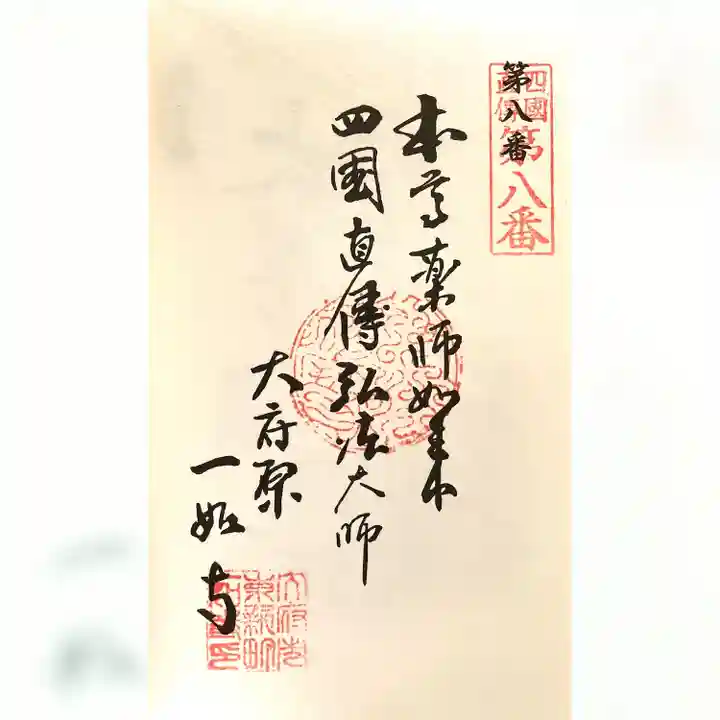 第八番
四國
直傳
第八番
本尊薬師如来
四國直傳弘法大師
大府
一
寺